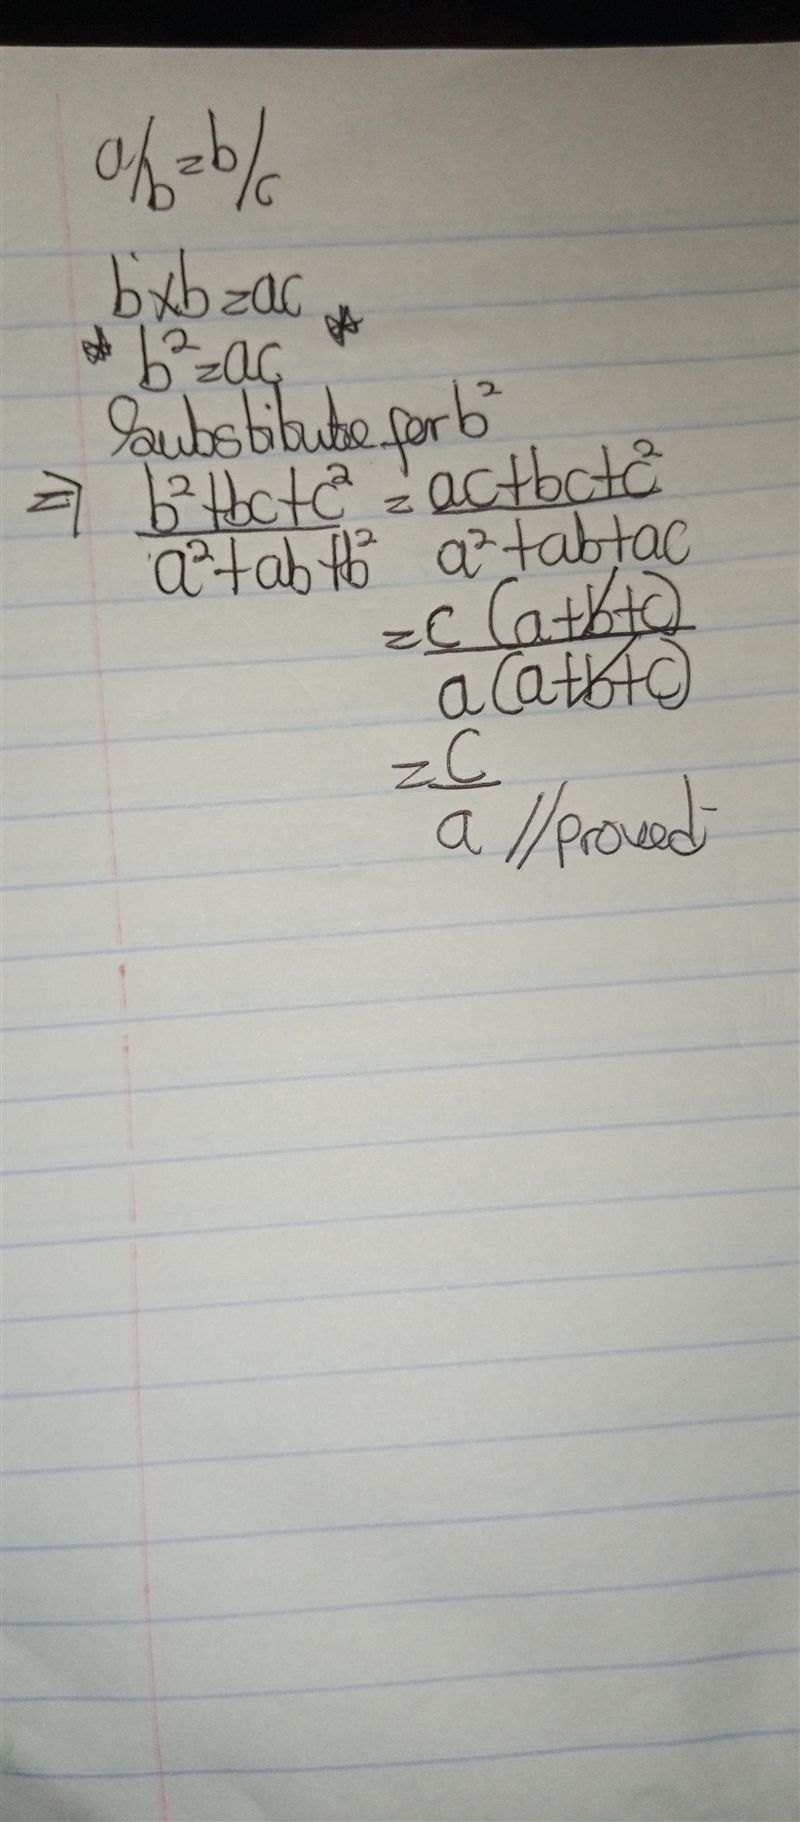 a/b=b/c
b×b=ac
* b²=ac *
Substitute for b²
⇒ b²+bc+c² / a²+ab+b² = ac+bc+c² / a²+ab+ac
= c(a+b+c) / a(a+b+c)
= c / a // proved